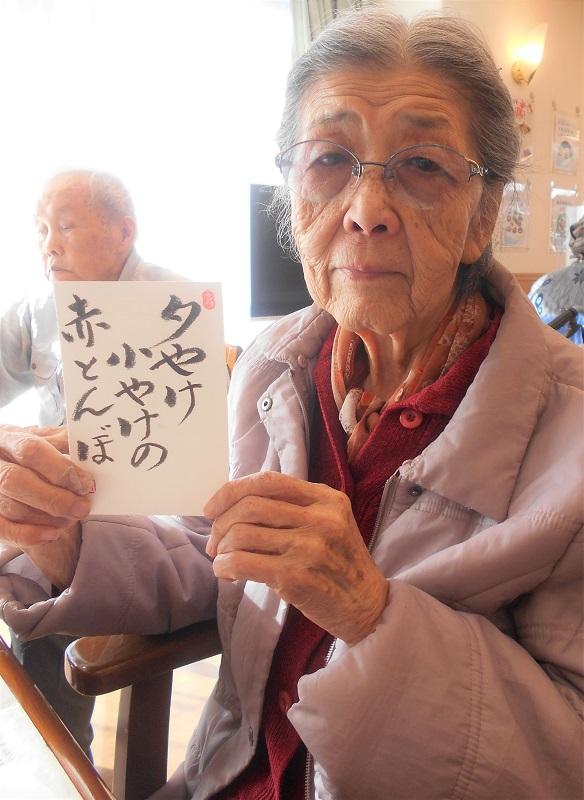 夕やけ
小やけの
赤とんぼ